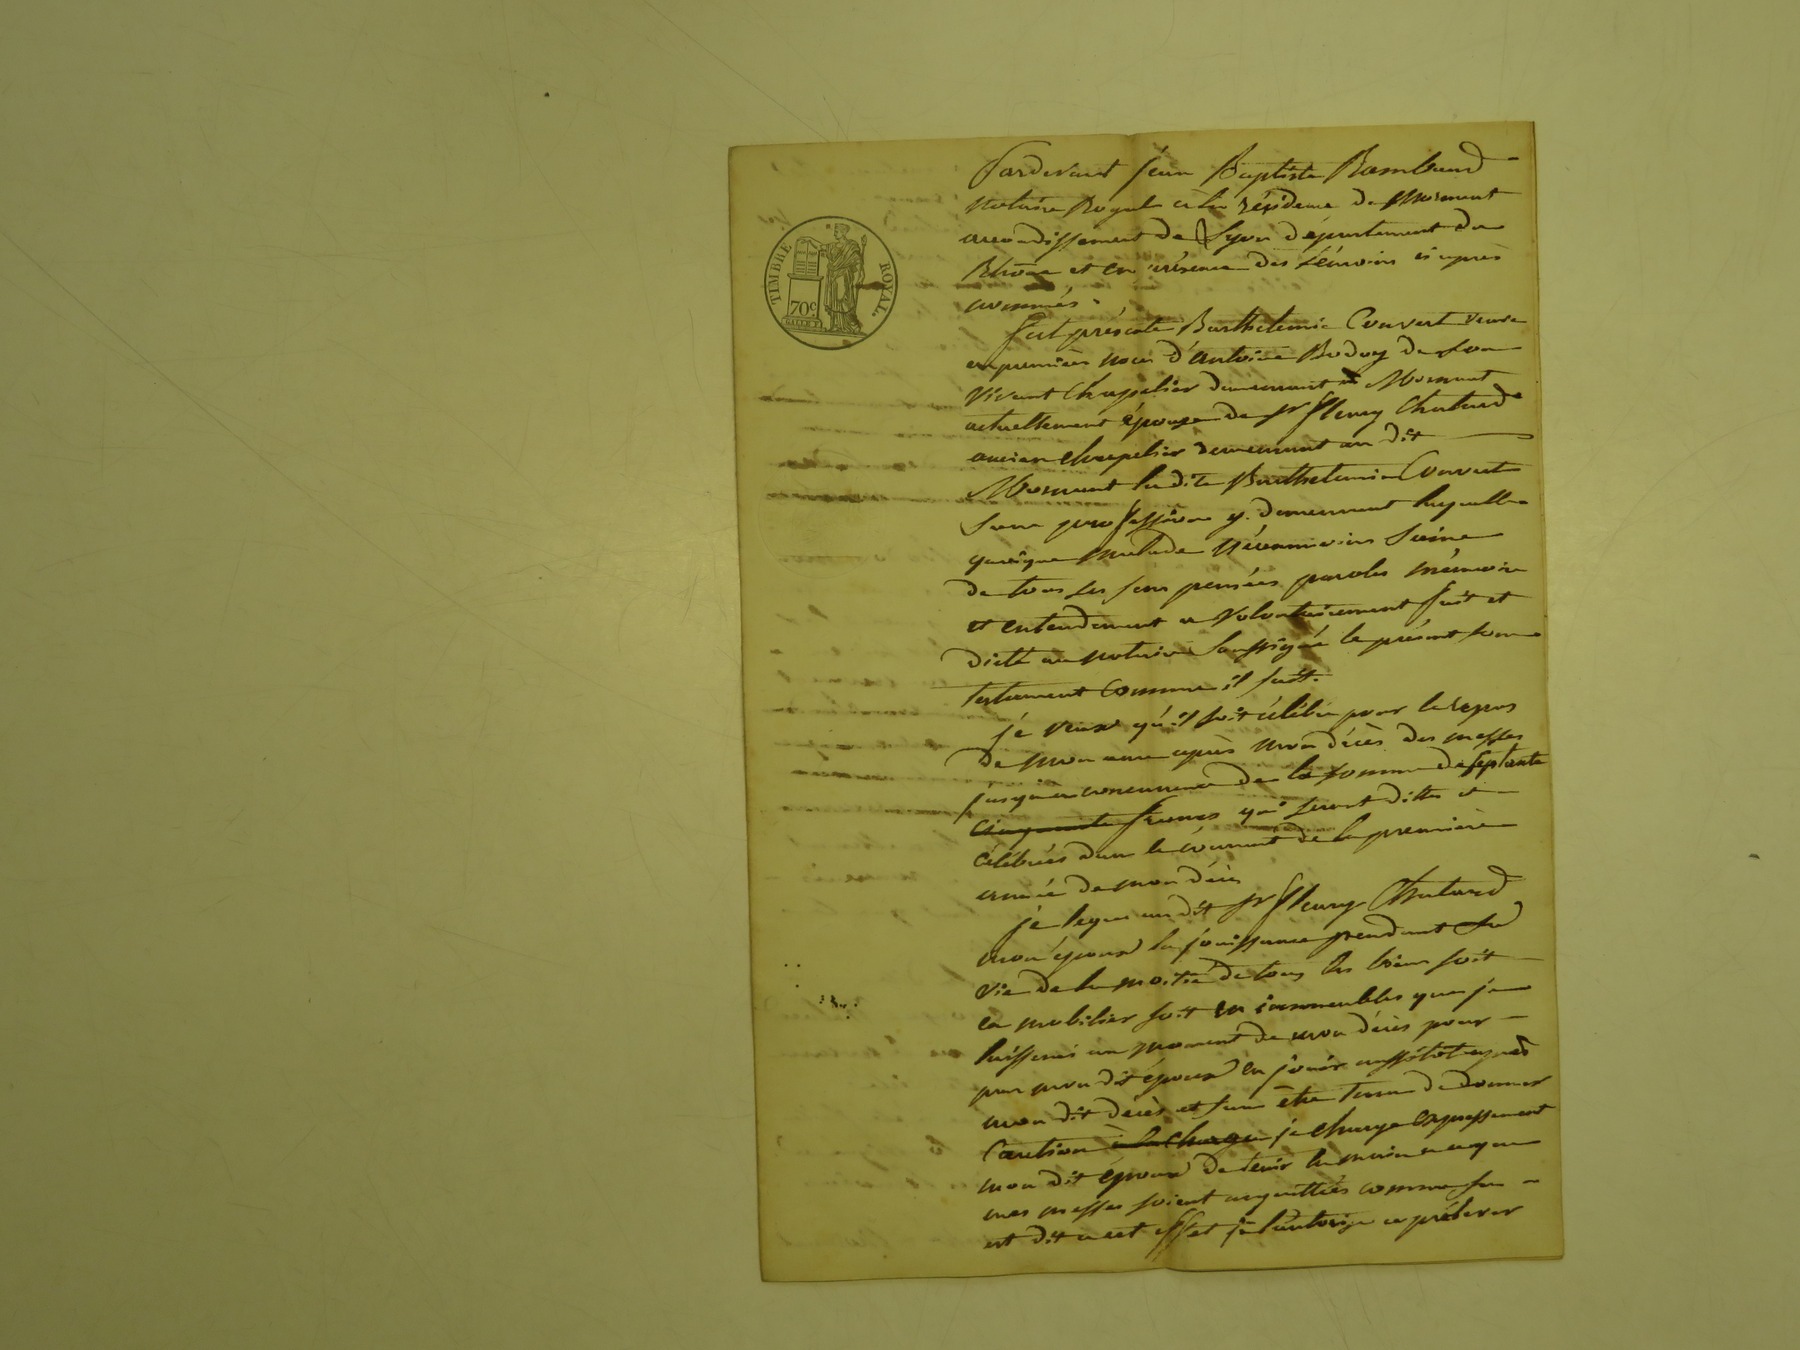 TIMBRE ROYAL.
70c
Pardevant jean Baptiste Rambaud
notaire Royal à la résidence de Mornant
arrondissement de Lyon département du
Rhône et en présence des témoins ci après
nommés.
fut présente Barthelemie Convert veuve
en premières noces d'antoine Bodoy de son
vivant Chapelier demeurant à Mornant
actuellement épouse de Sr fleury Chatard
ancien chapelier demeurant au dit
Mornant la dite Barthelemie Convert
sans profession y demeurant laquelle
quoique malade néanmoins saine
de tous ses sens pensées paroles mémoire
et entendement a volontairement fait et
dicté au notaire soussigné le présent son
testament comme il suit.
je veux qu'il soit célébré pour le repos
de mon ame après mon décès des messes
jusqu'a concurrence de la somme de septante
cinquante francs qui seront dittes et
célébrées dans le courant de la première
année de mon décès
je legue au dit Sr fleury Chatard
mon époux la jouissance pendant sa
vie de la moitié de tous les biens soit
en mobilier soit en immeubles que je
laisserai au moment de mon décès pour
par mon dit époux en jouir aussitôt après
mon dit décès et sans être tenu de donner
Caution à la charge je charge expressement
mon dit époux de tenir la main a ce que
mes messes soient acquittées comme
est dit a cet effet je l'autorise a prélever